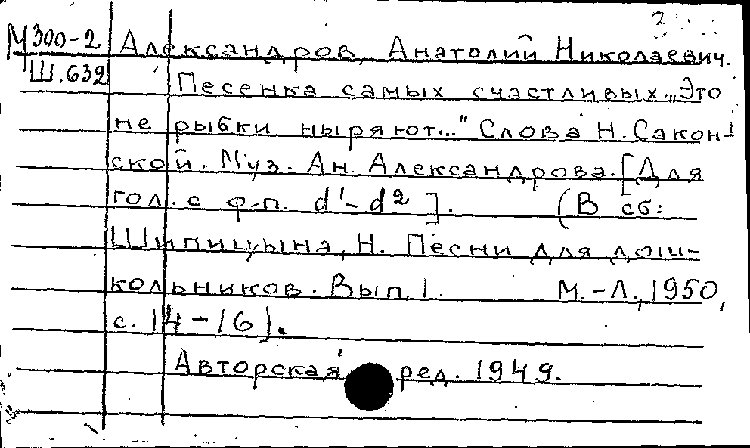 М300-2 Александров, Анатолий Николаевич.
Ш.632 Песенка самых счастливых. „Это
не рыбки ныряют..." Слова Н. Сакон-
ской. Муз. Ан. Александрова. [Для
гол. с ф.-п. d¹-d²]. (В сб:
Шипицына, Н. Песни для дош-
кольников. Вып. 1. М.-Л., 1950,
с. 14-16).
Авторская ред. 1949.